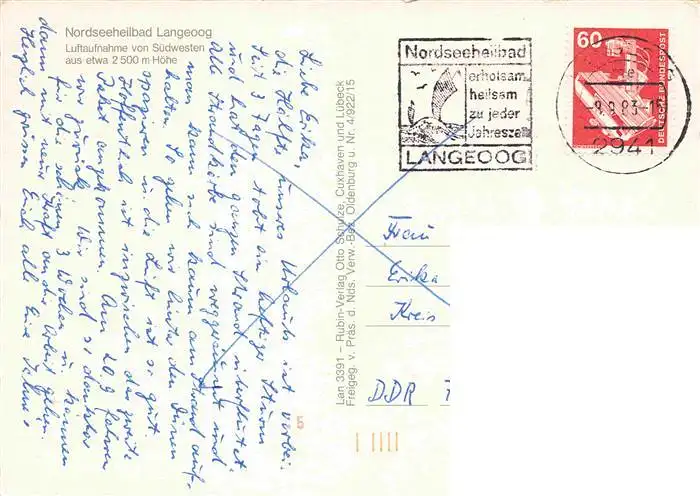 Nordseeheilbad Langeoog
Luftaufnahme von Südwesten
aus etwa 2 500 m Höhe
Liebe Erika,
die Hälfte unseres Urlaubs ist vorbei.
Seit 3 Tagen tobt ein heftiger Sturm
und hat den ganzen Strand überflutet.
Alle Strandkörbe sind weggeräumt und
man kann sich kaum am Strand auf-
halten. So gehen wir hinter den Dünen
spazieren u. die Luft ist so gut.
Hoffentlich ist inzwischen das zweite
Paket angekommen. Am 20.9 fahren
wir zurück. Wir sind so dankbar
für die schönen 3 Wochen u. können
dann mit neuer Kraft an die Arbeit gehen.
Herzlich grüssen Euch alle Eure
Lan 3391 – Rubin-Verlag Otto Schulze, Cuxhaven und Lübeck
Freigeg. v. Präs. d. Nds. Verw.-Bez. Oldenburg u. Nr. 4/922/15
Nordseeheilbad
erholsam
heilsam
zu jeder
Jahreszeit
LANGEOOG
60
DEUTSCHE BUNDESPOST
-9.9.83-1
2941
Frau
Erika
Kreis
DDR
5